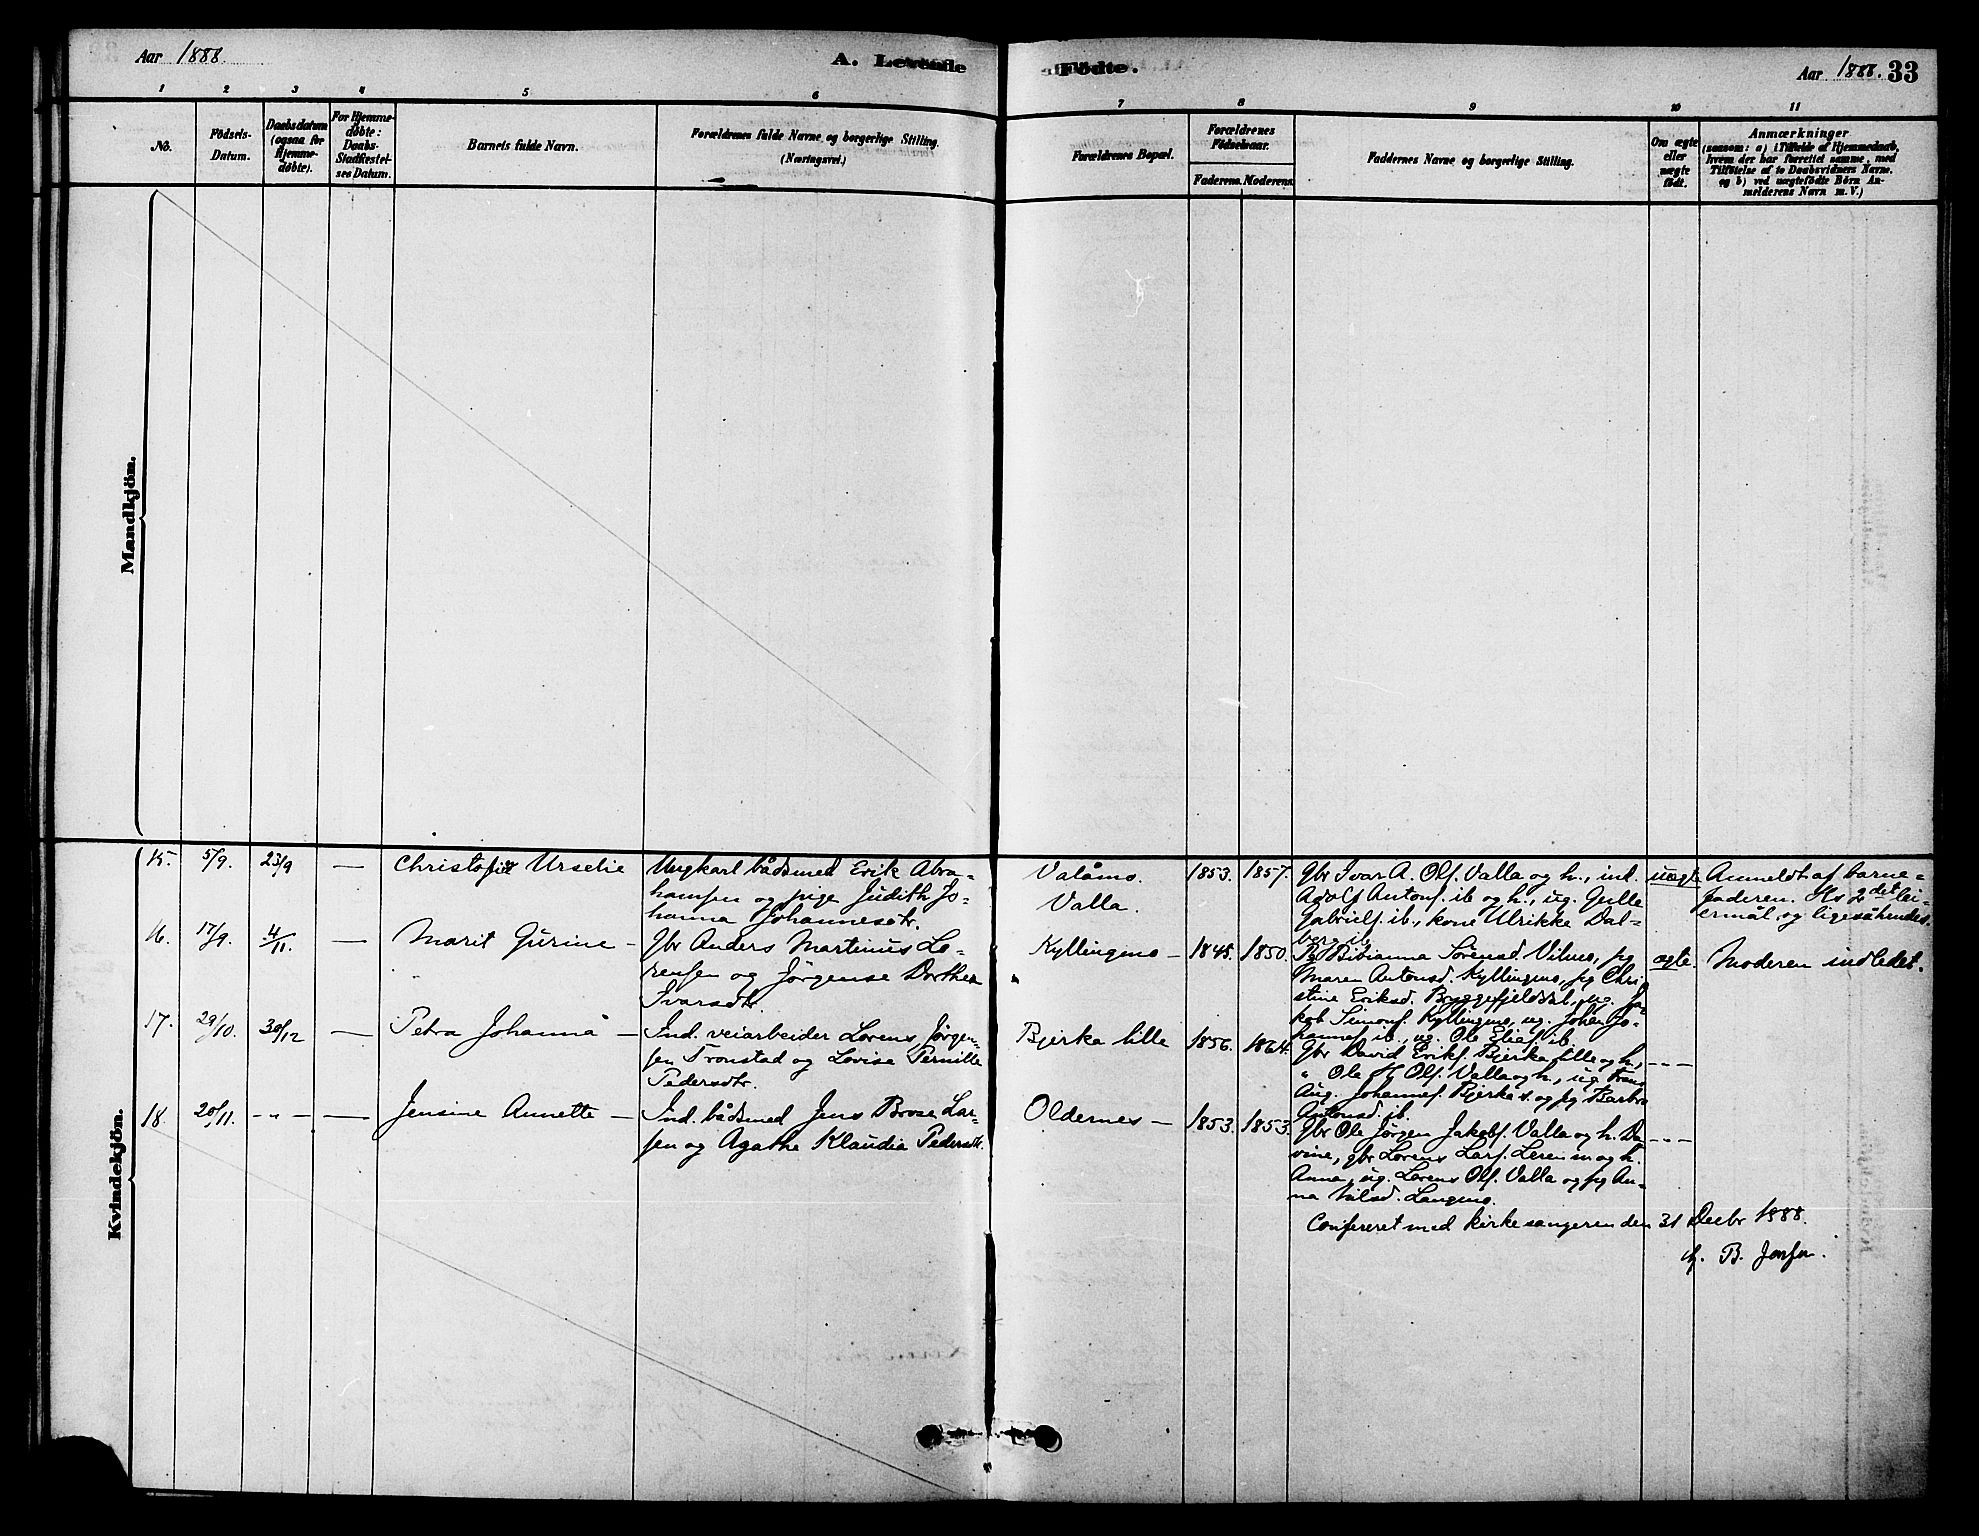 Aar 1888.
A. Levende Fødte.
Aar 1888. 33
1 2 3 4 5 6 7 8 9 10 11
No.
Födsels-
Datum.
Daabsdatum
(ogsaa for
Hjemme-
døbte).
For Hjemme-
døbte:
Daabs-
Stadfæstel-
ses Datum.
Barnets fulde Navn.
Forældrenes fulde Navne og borgerlige Stilling.
(Næringsvei.)
Forældrenes Bopæl.
Forældrenes
Födselsaar.
Faderens. Moderens.
Faddernes Navne og borgerlige Stilling.
Om ægte
eller
uægte
födt.
Anmærkninger
(saasom: a) i Tilfælde af Hjemmedaab,
hvem der har forrettet samme, med
Tilföielse af to Daabsvidners Navne,
og b) ved uægtefödte Börn An-
melderens Navn m. V.)
Mandkjön.
Kvindekjön.
15. 5/9. 23/9 — Urselie
Ungkarl bådsmed Erik Abra-
hamsen og pige Judith Jo-
hanna Johannesdtr.
Valåmo.
Valla.
1853. 1857.
Gbr Ivar A. Ols. Valla og h., ind.
Adolf Antons. ib og h., ug.
Gabriels. ib., kone Ulrikke Dal-
berg ib
uægte
Anmeldt af barne-
faderen. Hs 2det lei-
ermål og ligesåhendes.
16. 17/9. 4/11. — Marit Gurine —
Gbr Anders Martinus Lo-
rensen og Jørgense Dorthea
Ivarsdtr.
Kyllingmo —
1845. 1850.
Pg Bibianna Sørensd. Vilmo, pg
Maren Antonsd. Kyllingmo, pg Chri-
stine Eriksd. ug. Ja-
kob Simons. Kyllingmo, ug. Johan Jo-
hannes. ib., ug. Ole Elias. ib
ægte.
Moderen indledet.
17. 29/10. 30/12 — Petra Johanna —
Ind. veiarbeider Lorens Jørgen-
sen Tronstad og Lovise Pernille
Pedersdtr.
Bjerka lille
1856. 1864.
Gbr David Eriks. Bjerka lille og h.,
" Ole H Ols. Valla og h., ug Frans
Aug. Johannes. Bjerka s. og pg Barbro
Antonsd. ib.
— — —
18. 20/11. - - - — Jensine Annette —
Ind. bådsmed Jens Brose Lar-
sen og Agathe Klaudia Pedersdt.
Oldernes —
1853. 1853.
Gbr Ole Jørgen Jakobs. Valla og h. Da-
vine, gbr Lorens Lars. Leren m og h.
Anna, ug. Lorens Ols. Valla og pg An-
na Nilsd. Langmo.
— — —
Confereret med kirkesangeren den 31 Decbr 1888.
B. Jensen.